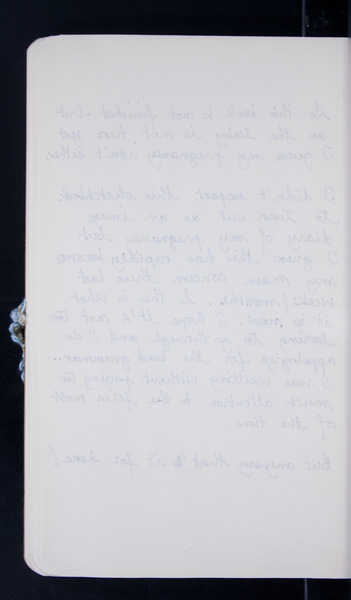 So this book is not finished but
as the baby is not here yet
I guess my pregnancy isn't either

I didn't expect this sketchbook
to turn out as an
diary of my pregnancy but
I guess this has rapidly become
my main concern these last
weeks/months... So this is what
it is now. I hope it's not too
boring to go through and I do
apologize for the bad grammar...
I was writting without paying too
much attention to the form most
of the time.

But anyway that's it for here!